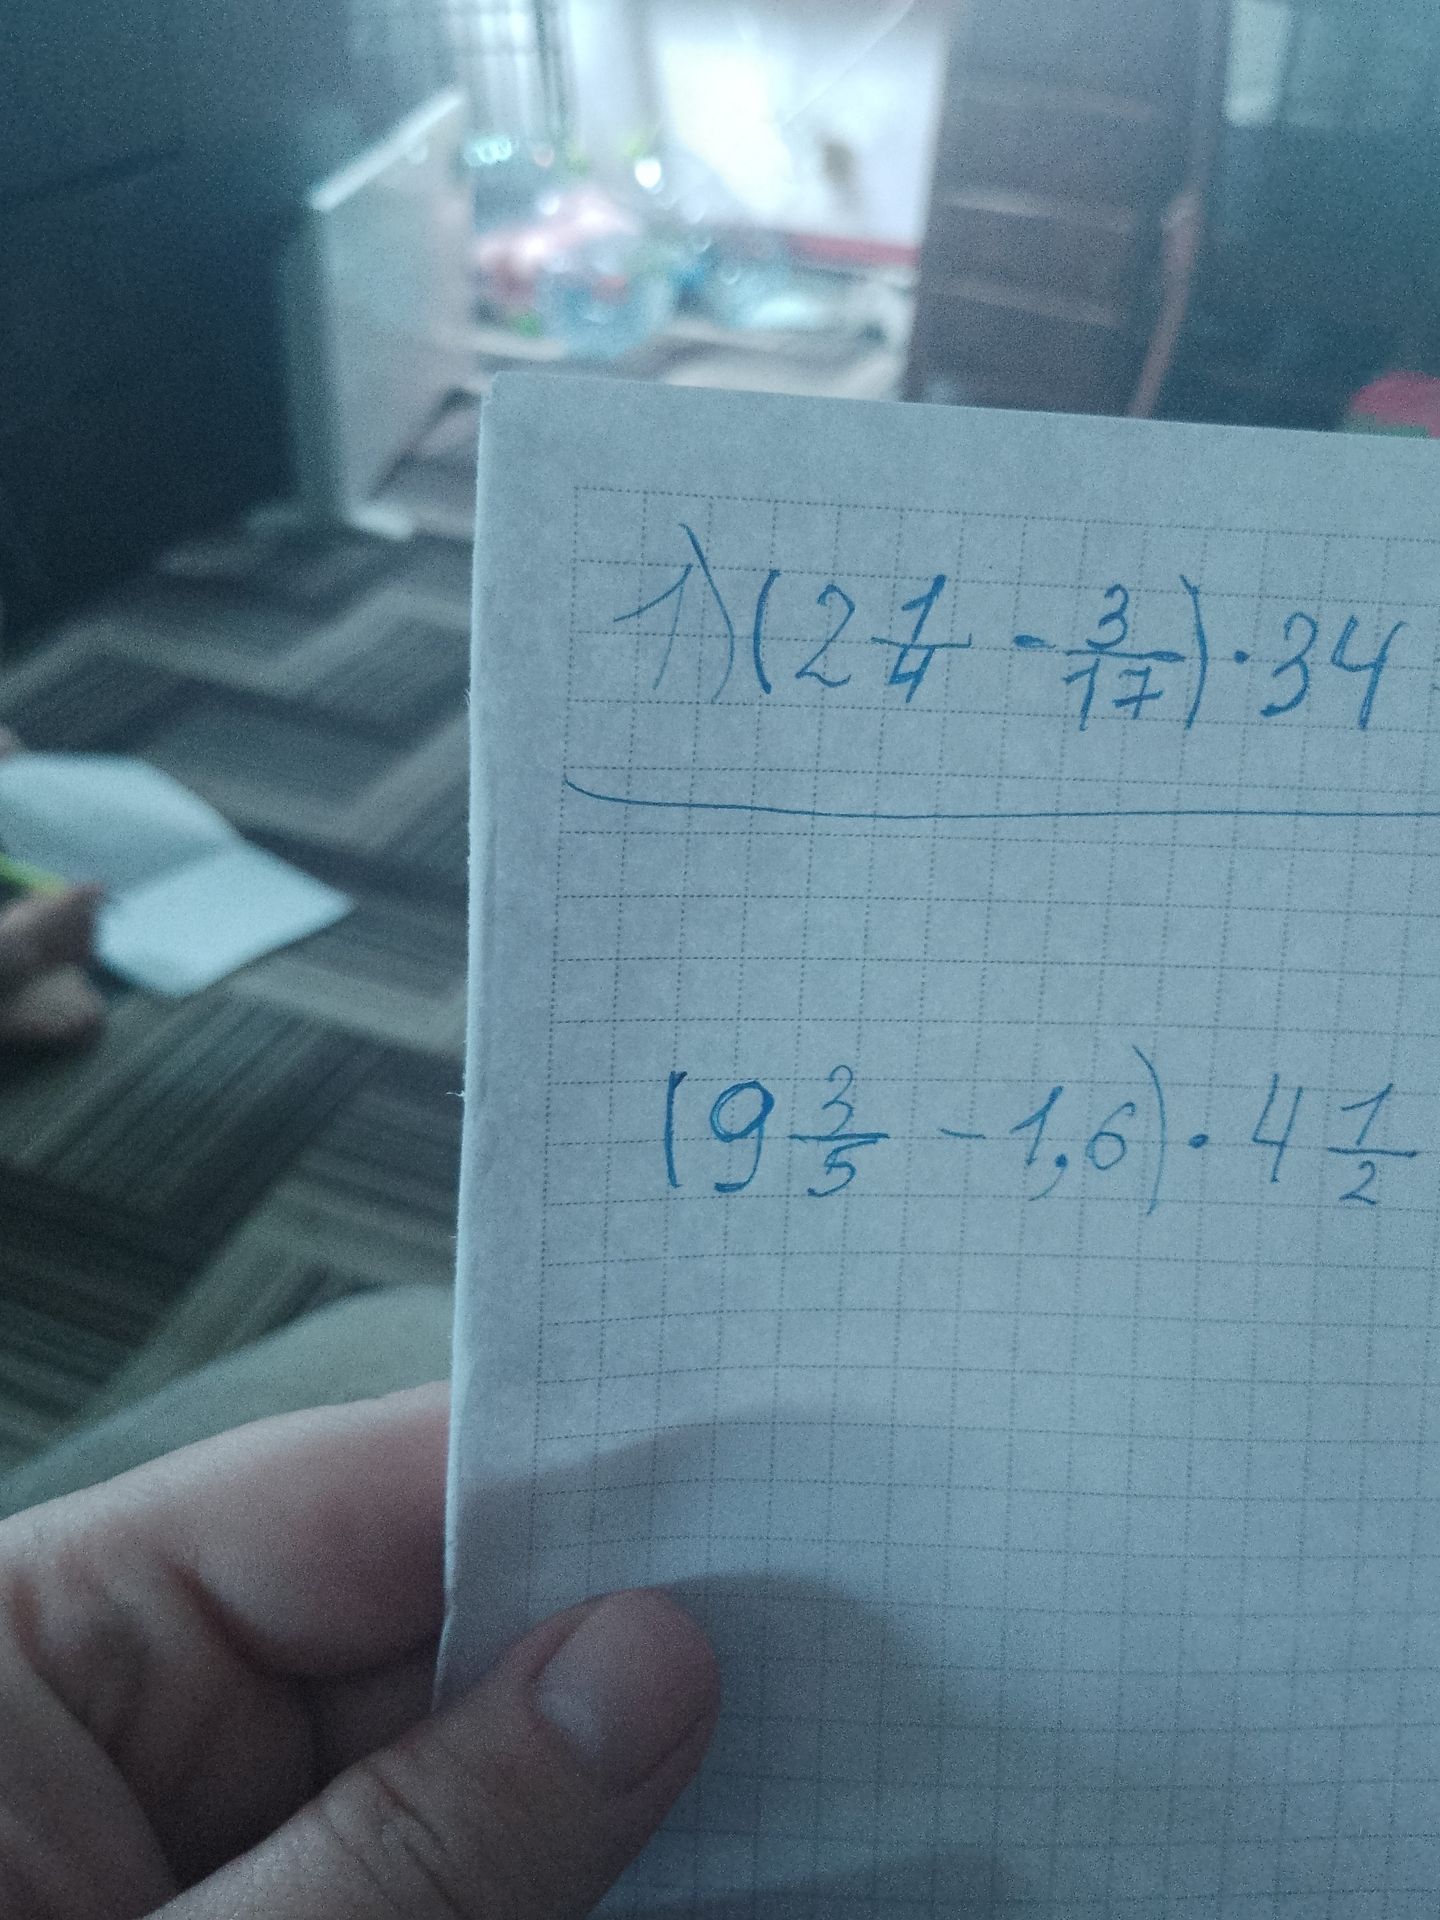 1) (2 1/4 - 3/17) · 34
(9 3/5 - 1,6) · 4 1/2